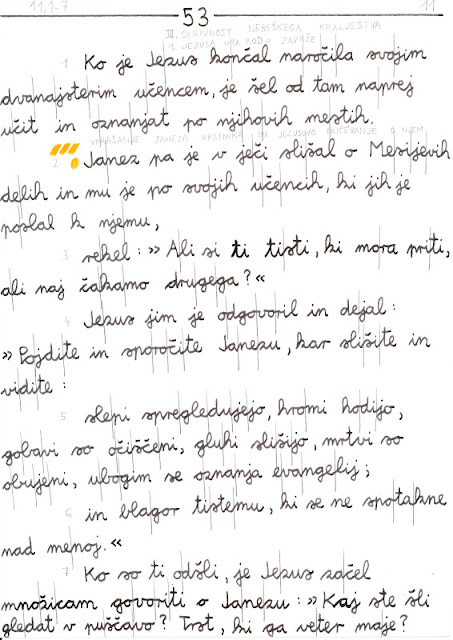 11,1-7
53
11
III. SKRIVNOST NEBEŠKEGA KRALJESTVA
1. JEZUSA NJEGOV ROD ZAVRŽE
1 Ko je Jezus končal naročila svojim
dvanajsterim učencem, je šel od tam naprej
učit in oznanjat po njihovih mestih.
VPRAŠANJE JANEZA KRSTNIKA IN JEZUSOVO PRIČEVANJE O NJEM
2 Janez pa je v ječi slišal o Mesijevih
delih in mu je po svojih učencih, ki jih je
poslal k njemu,
3 rekel: »Ali si ti tisti, ki mora priti,
ali naj čakamo drugega?«
4 Jezus jim je odgovoril in dejal:
»Pojdite in sporočite Janezu, kar slišite in
vidite:
5 slepi spregledujejo, hromi hodijo,
gobavi so očiščeni, gluhi slišijo, mrtvi so
obujeni, ubogim se oznanja evangelij;
6 in blagor tistemu, ki se ne spotakne
nad menoj.«
7 Ko so ti odšli, je Jezus začel
množicam govoriti o Janezu: »Kaj ste šli
gledat v puščavo? Trst, ki ga veter maje?